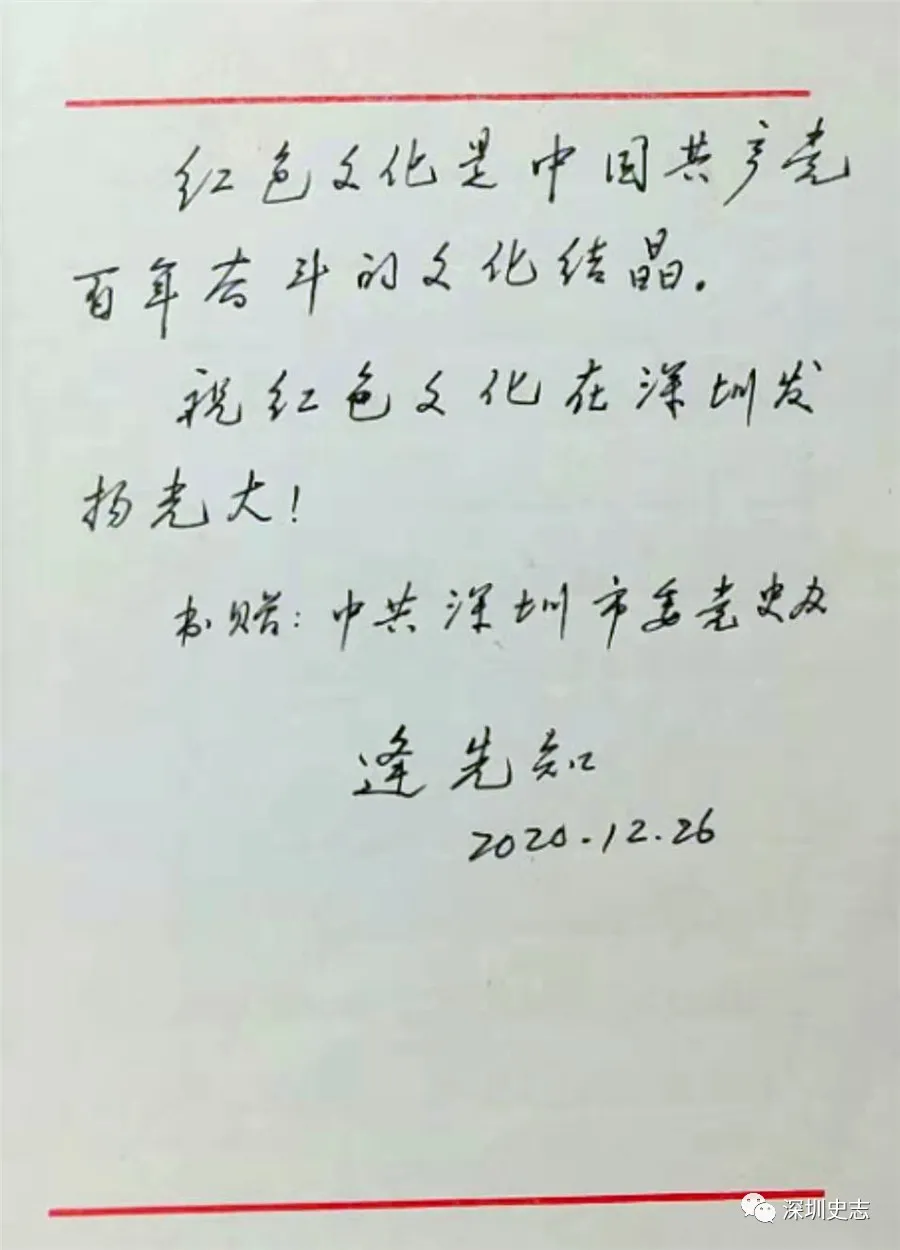 红色文化是中国共产党
百年奋斗的文化结晶。
祝红色文化在深圳发
扬光大！
书赠：中共深圳市委党史办
逄先知
2020.12.26
深圳史志